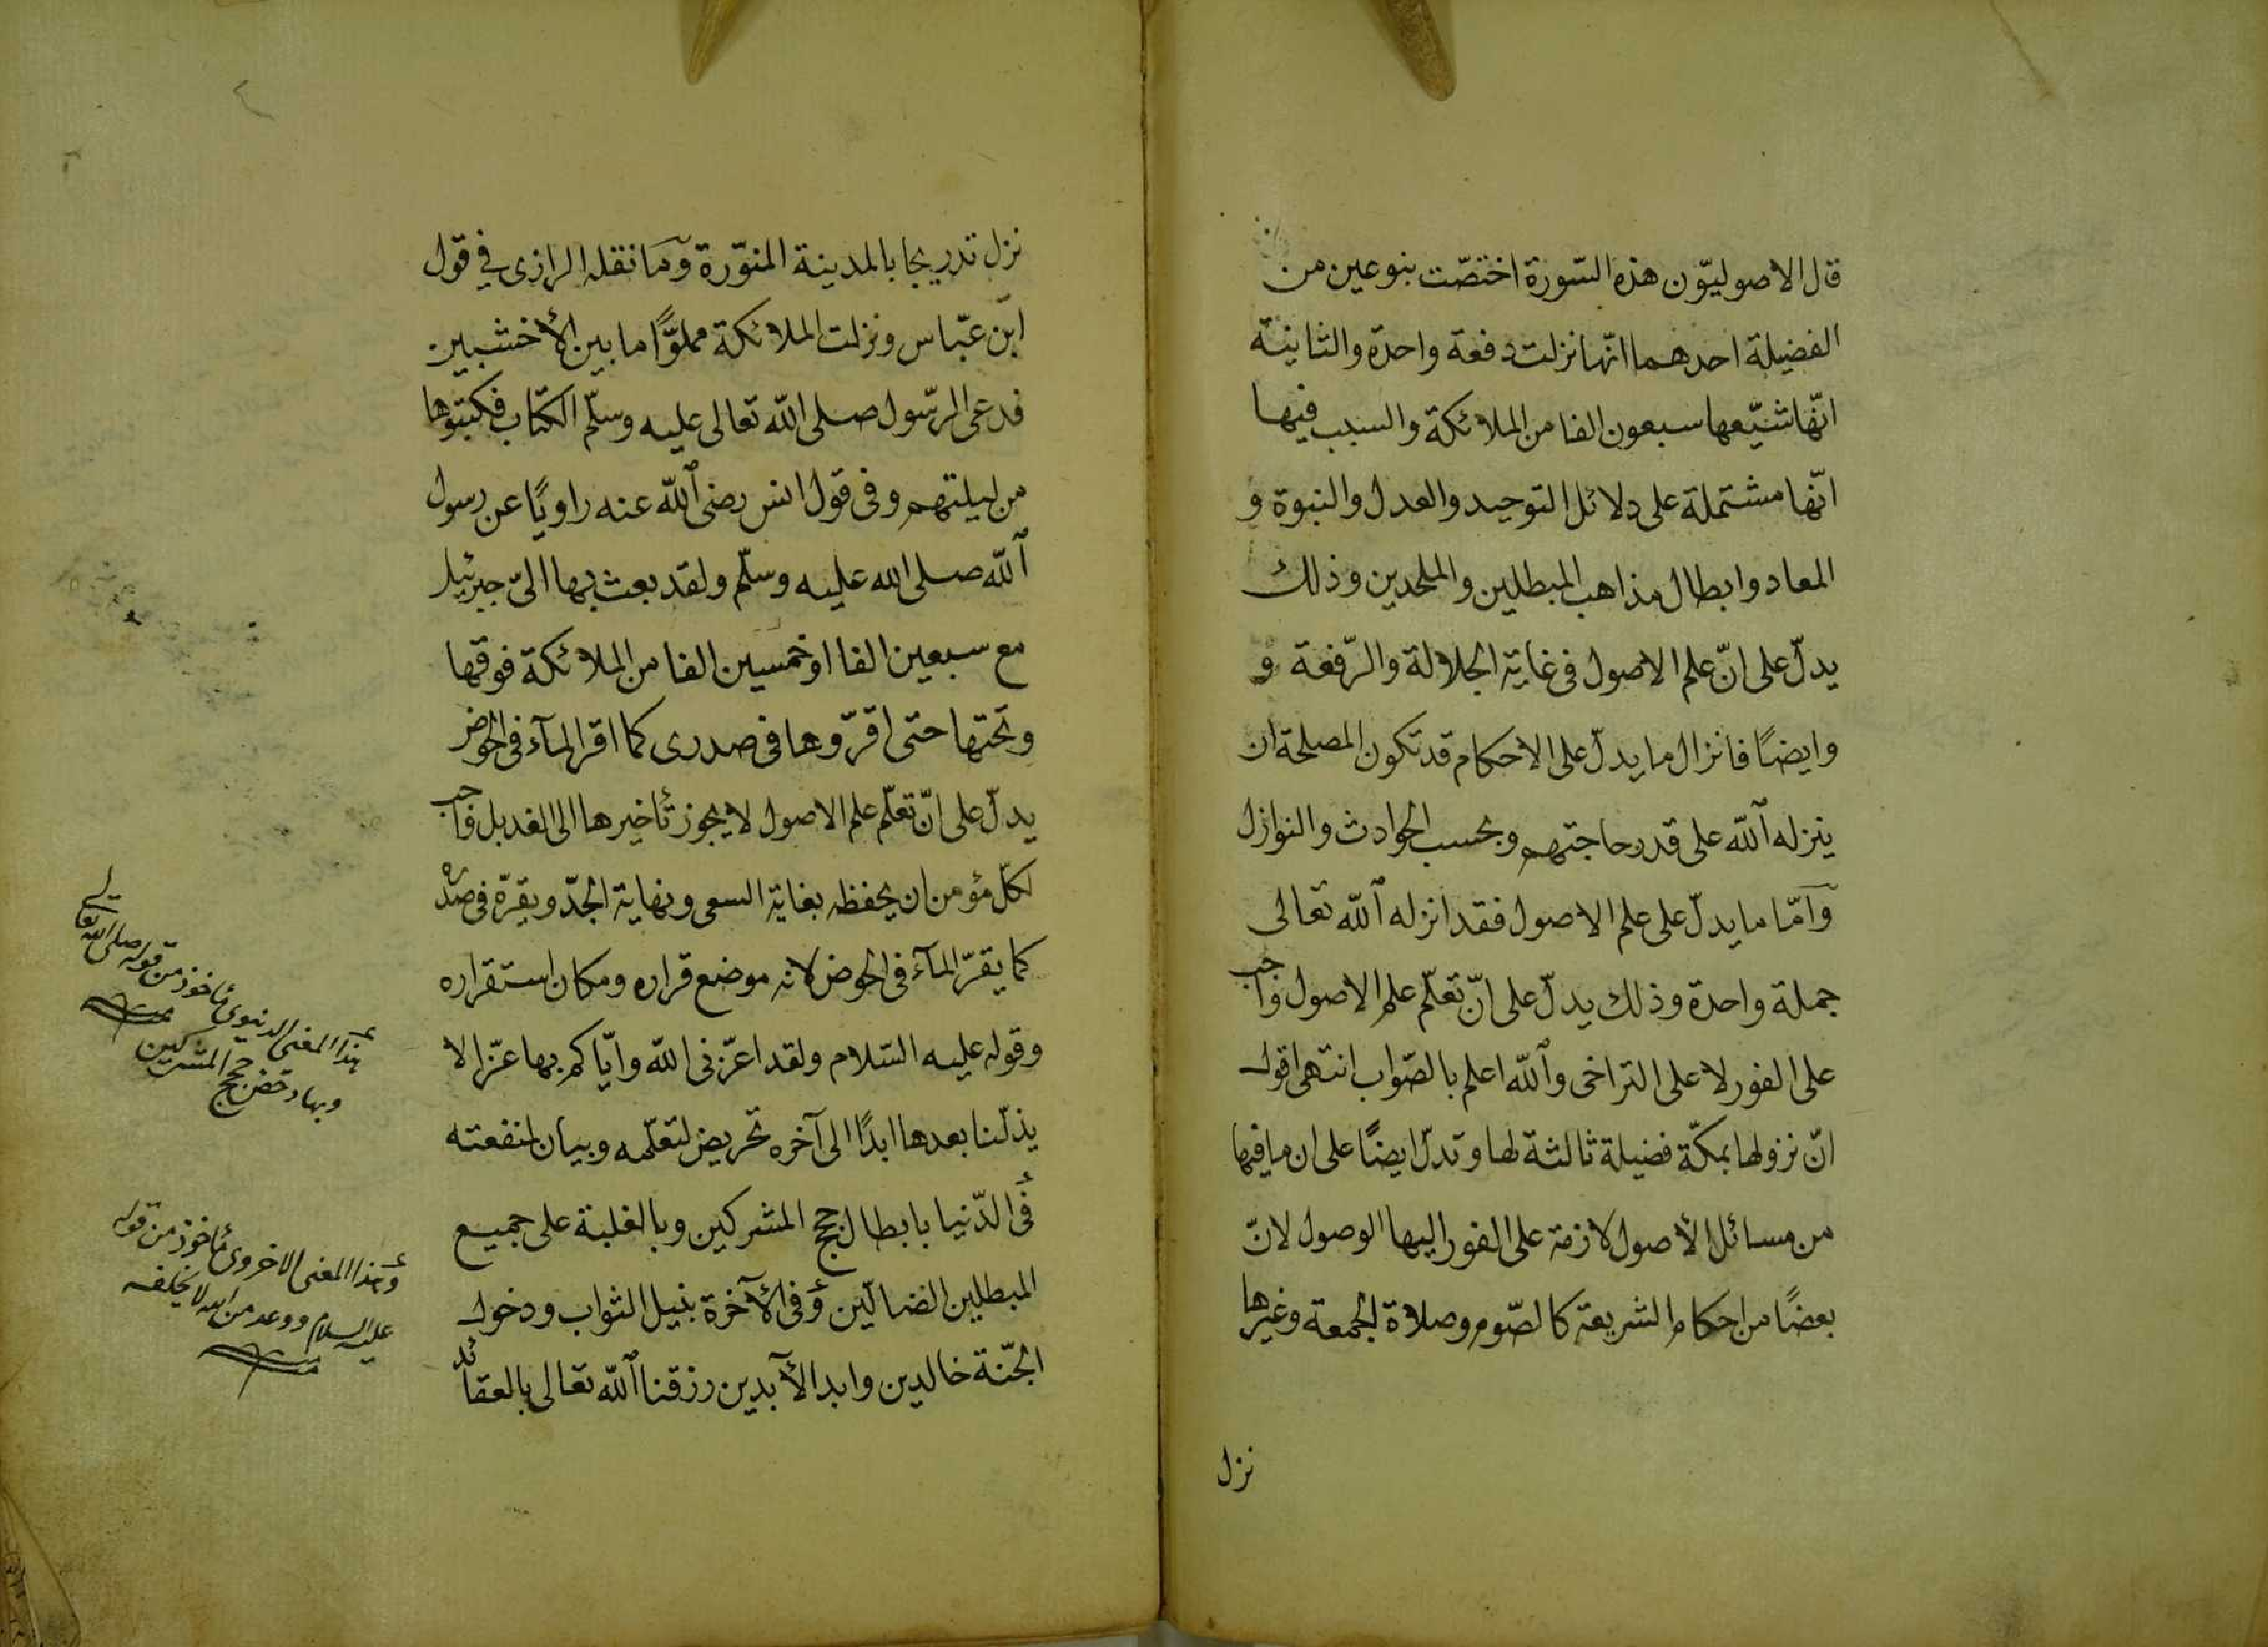 قال الاصوليّون هذه السّورة اختصّت بنوعين من
الفضيلة احدهما انّها نزلت دفعة واحدة والثانية
انّها شيّعها سبعون الفا من الملائكة والسبب فيها
انّها مشتملة على دلائل التوحيد والعدل والنبوة و
المعاد وابطال مذاهب المبطلين والملحدين وذلك
يدلّ على انّ علم الاصول فى غاية الجلالة والرّفعة و
وايضًا فانزال ما يدلّ على الاحكام قد تكون المصلحة ان
ينزله الله على قدر حاجتهم وبحسب الحوادث والنوازل
وامّا ما يدلّ على علم الاصول فقد انزله الله تعالى
جملة واحدة وذلك يدلّ على انّ تعلّم علم الاصول واجب
على الفور لا على التراخى والله اعلم بالصّواب انتهى اقول
انّ نزولها بمكّة فضيلة ثالثة لها وتدلّ ايضًا على ان ما فيها
من مسائل الأصول لازمة على الفور اليها الوصول لانّ
بعضًا من احكام الشريعة كالصّوم وصلاة الجمعة وغيرها
نزل
نزل تدريجا بالمدينة المنوّرة وما نقله الرازى في قول
ابن عبّاس ونزلت الملائكة مملوًّا ما بين الأخشبين
فدعى الرّسول صلى الله تعالى عليه وسلّم الكتّاب فكتبوها
من ليلتهم وفى قول انس رضى الله عنه راويًا عن رسول
الله صلى الله عليه وسلّم ولقد بعث بها الىّ جبرئيل
مع سبعين الفا او خمسين الفا من الملائكة فوقها
وتحتها حتى اقرّوها فى صدرى كما اقر المآء فى الحوض
يدلّ على انّ تعلّم علم الاصول لا يجوز تأخيرها الى الغد بل واجب
لكلّ مؤمن ان يحفظه بغاية السعى ونهاية الجدّ ويقرّه فى صدره
كما يقرّ المآء فى الحوض لانه موضع قراره ومكان استقراره
وقوله عليه السّلام ولقد اعزّنى الله وايّاكم بها عزّا لا
يذلّنا بعدها ابدًا الى آخره تحريض لتعلّمه وبيان لمنفعته
فى الدّنيا بابطال حجج المشركين وبالغلبة على جميع
المبطلين الضالّين وفى الآخرة بنيل الثواب ودخول
الجنّة خالدين وابد الآبدين رزقنا الله تعالى بالعقائد
هذا المعنى الدنيوى مأخوذ من قوله صلى الله تعالى
وبها دحض حجج المشركين
وهذا المعنى الاخروى مأخوذ من قوله
عليه السلام ووعد من الله لا يخلفه